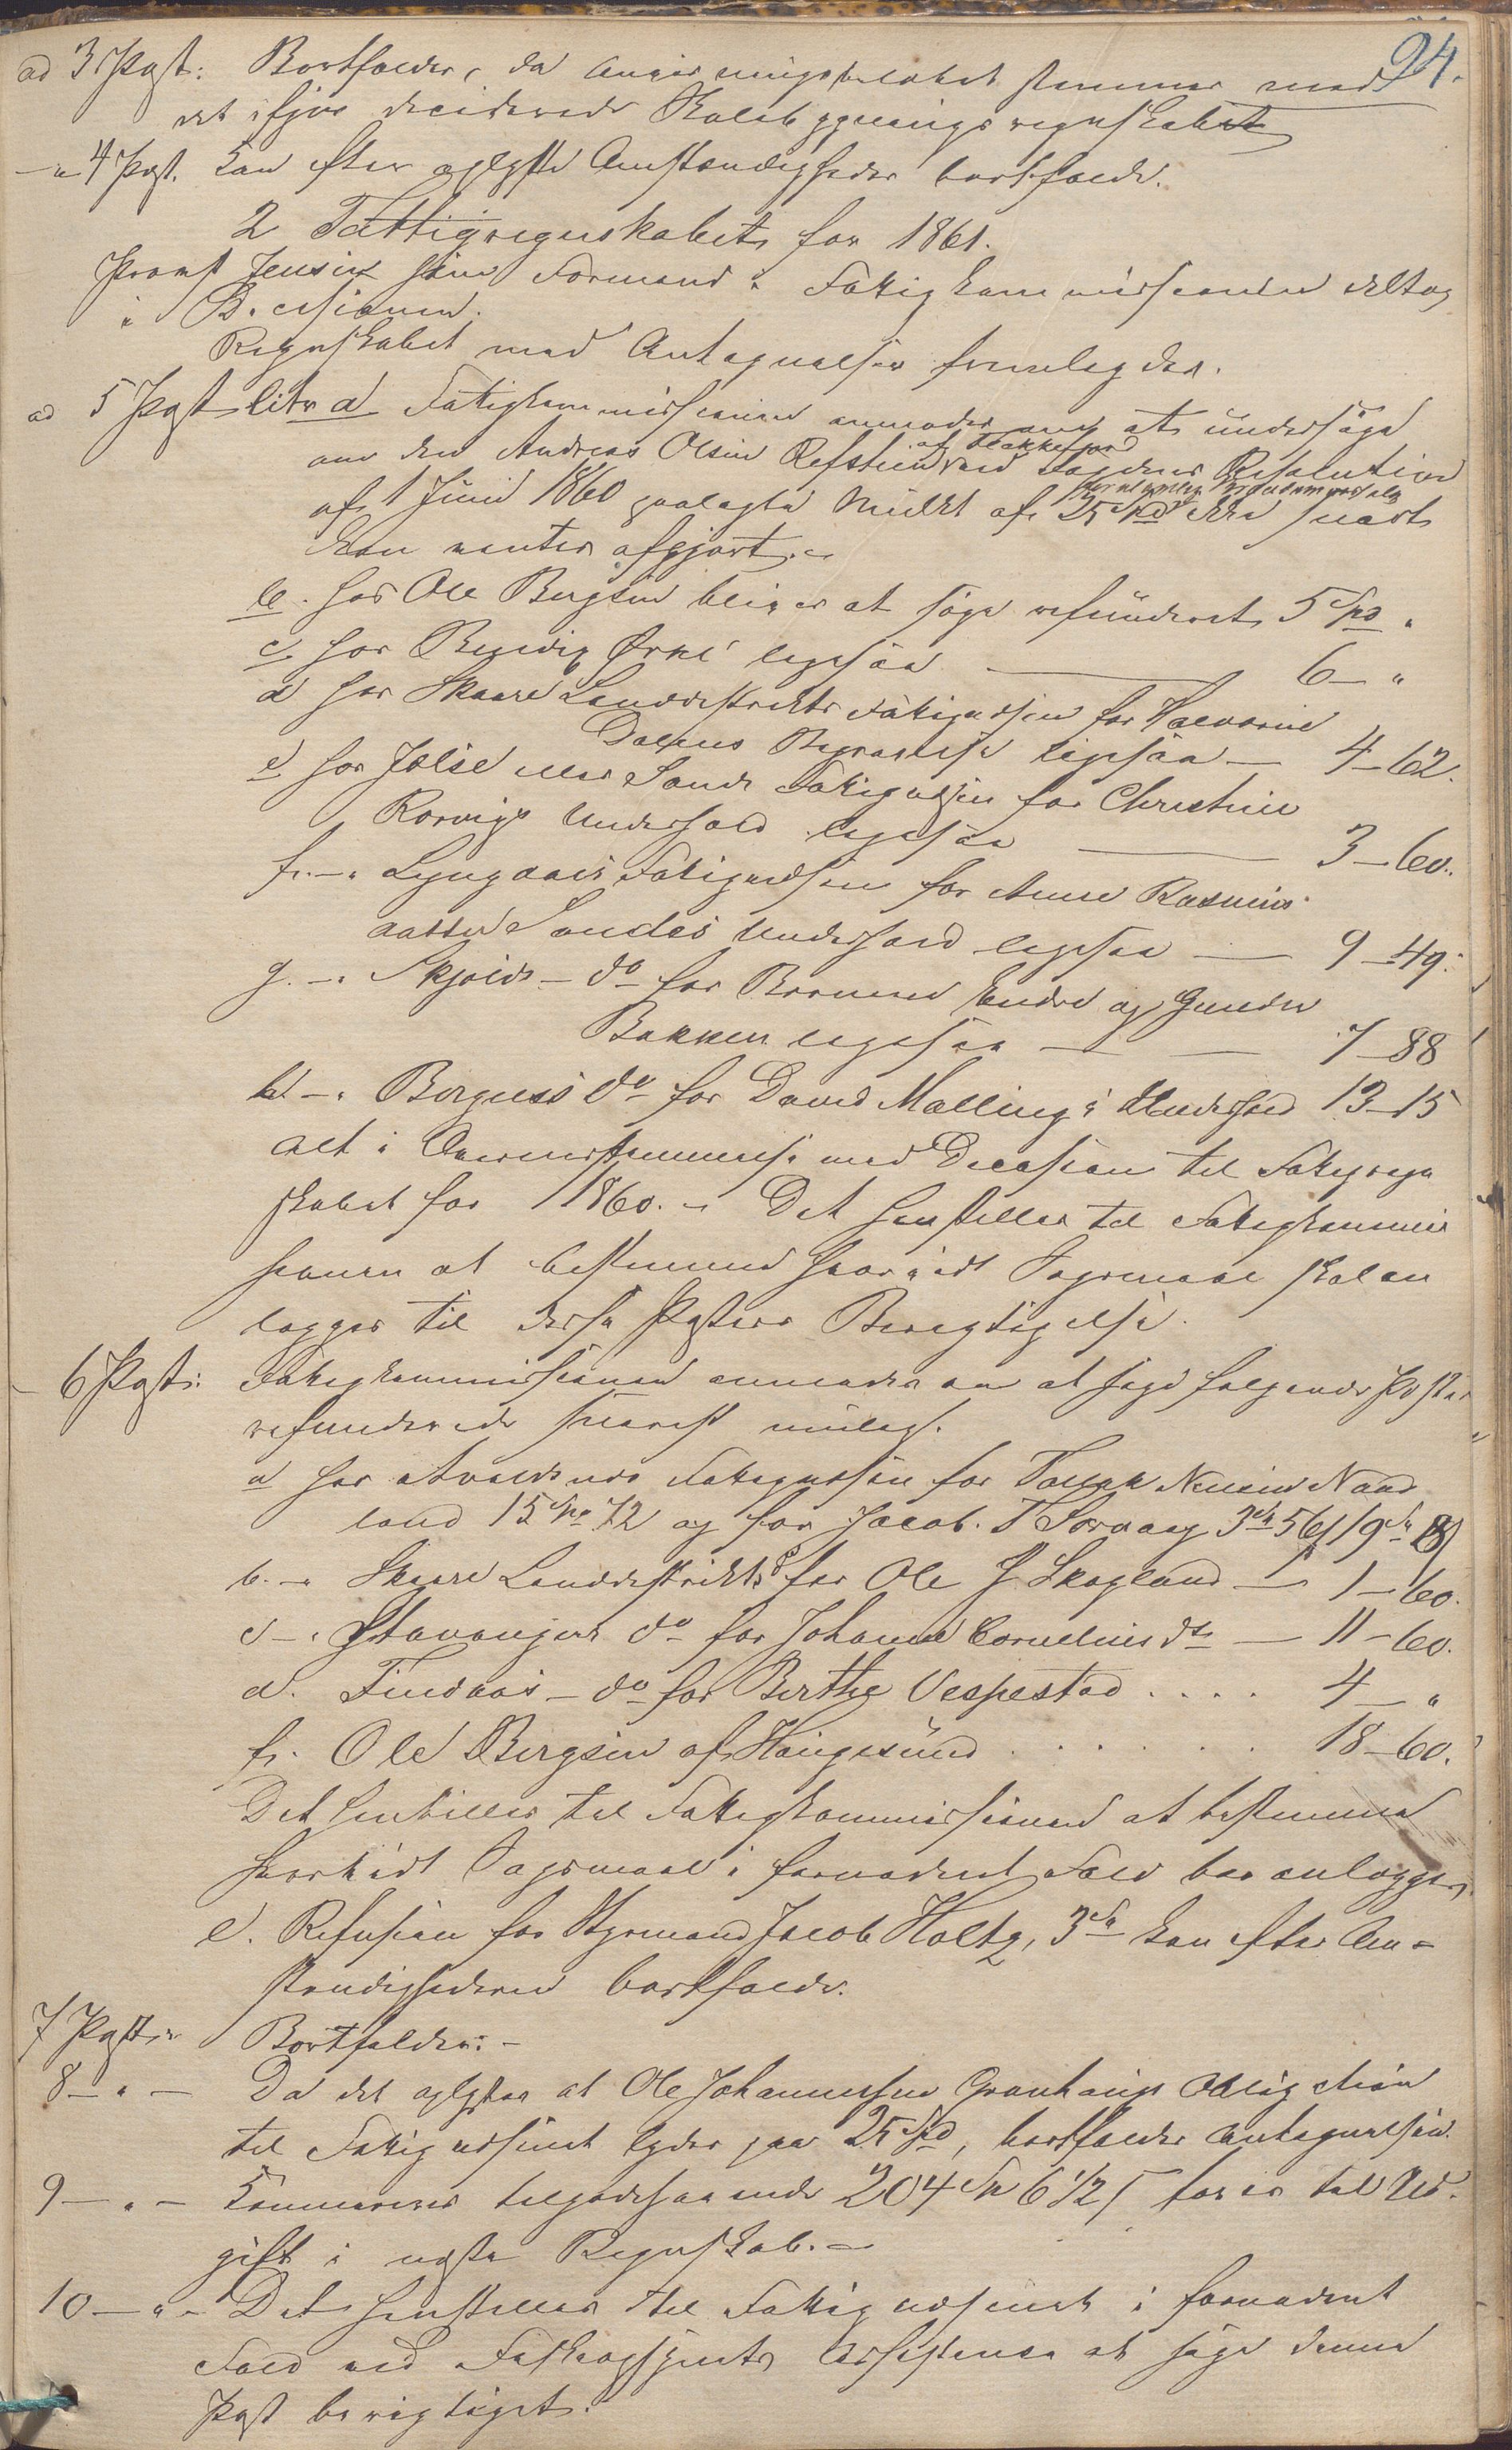 94.
ad 3 Post: Bortfalder, da Anviisningsbeløbet stemmer med
det ifjor deciderede Skolebygningsregnskabet
-"- 4 Post. kan efter oplyste Omstændigheder bortfalde.
2 Fattigregnskabet for 1861.
Provst Jensen som Formand i Fattigkommissionen deltog
i Decisionen.
Regnskabet med Antegnelser fremlagdes.
ad 5 Post litr a Fattigkommissionen anmodes om at undersøge
af Flekkefjord
om den Andreas Olsen Refsteen ved Resolution
af 1 Juni 1860 paalagte Mulkt af 25 Spd ikke snart
kan ventes afgjort.-
b. hos Ole Bergsen bliver at søge refunderet 5 Spd "
c hos Ørke ligesaa — 6 — "
d hos Skaare Landdistrikts Fattigvæsen for Halvorine
Dalens Begravelse ligesaa — 4 - 62.
e hos Jelse eller Sands Fattigvæsen for Christine
Rorvigs Underhold ligesaa — 3 - 60.
f. -" Lyngdals Fattigvæsen for Anne Rasmus-
datter Sandes Underhold ligesaa — 9 - 49.
g. -" Skjolds - do for Endre og Gunder
Bakken ligesaa — 7 - 88
h. -" Borgunds do for David Malling's Underhold 13 - 15
alt i Overensstemmelse med Decision til Fattigregn
skabet for 1860. - Det henstilles til Fattigkommis
sionen at bestemme hvorvidt Søgsmaal skal an
lægges til disse Posters Berigtigelse.
- 6 Post: Fattigkommissionen anmodes om at søge følgende Poster
refunderede snarest muligt.
a hos Avaldsnes Fattigvæsen for Tallak Nilsen Nord
land 15 Spd 72 og for Jacob T Sorvaag 3 Sp 56 19 Sp 8
b. -" Skaare Landdistrikts do for Ole J. Skogland — 1 - 60.
c -" Stavangers do for Johanne Corneliusdtr — 11 - 60.
d. Findaas - do for Berthe Vespestad .... 4 - "
f. Ole Bergsen af Haugesund ...... 18 - 60.
Det henstilles til Fattigkommissionen at bestemme
hvorvidt Søgsmaal i fornødent Fald bør anlægges.
e. Refusion for Styrmand Jacob Holtz, 3 Sp kan efter Om-
stændighederne bortfalde.
7 Post: Bortfalder. -
8 - " - Da det oplyses at Ole Johannessen Gronhaugs Obligation
til Fattigvæsenet lyder paa 25 Spd, bortfalder Antegnelsen.
9 - " - Kæmnerens tilgodehavende 204 Sp 6 1/2 s føres til Ud-
gift i næste Regnskab. -
10 - " - Det henstilles til Fattigvæsenet i fornødent
Fald ved Assistance at søge denne
Post berigtiget.